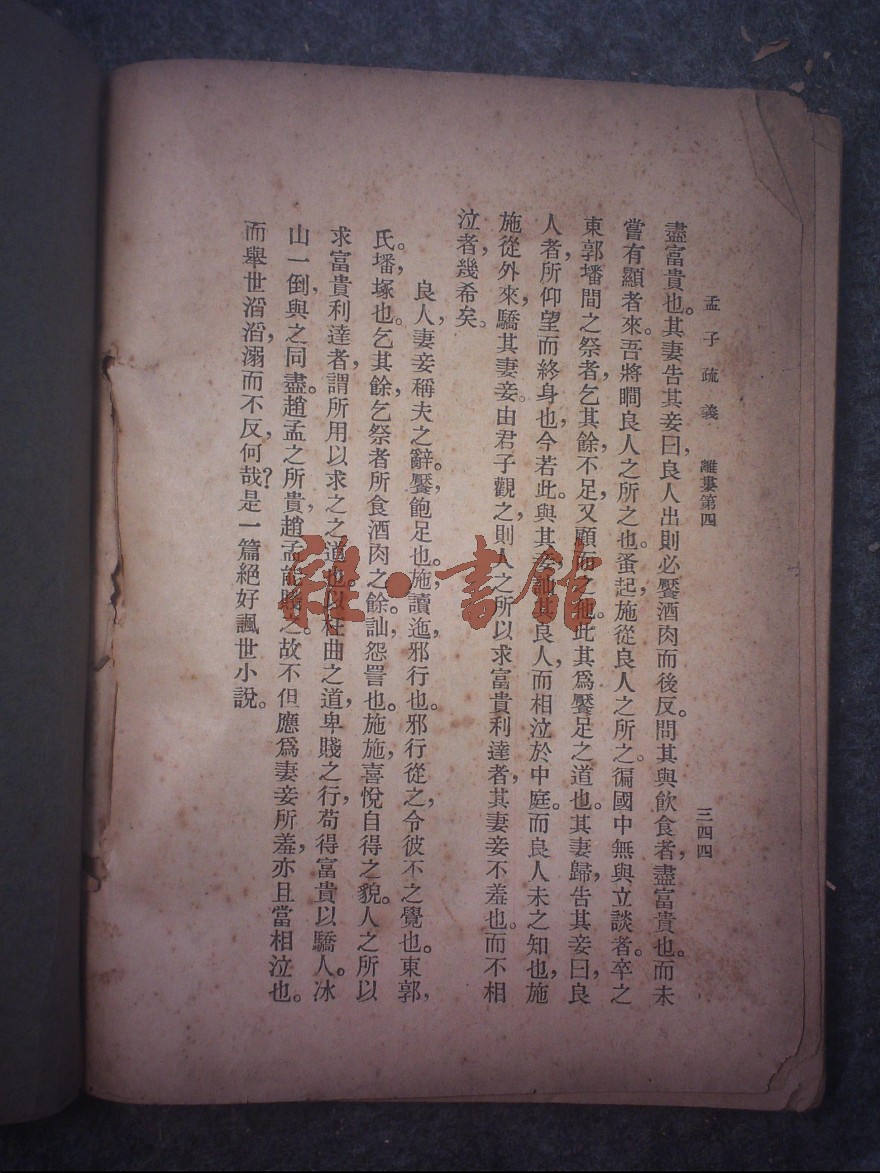 孟子疏義　離婁第四　三四四
盡富貴也。其妻告其妾曰，良人出則必饜酒肉而後反。問其與飲食者，盡富貴也。而未
嘗有顯者來。吾將瞷良人之所之也。蚤起，施從良人之所之。徧國中無與立談者。卒之
東郭墦間之祭者，乞其餘，不足，又顧而之他。此其爲饜足之道也。其妻歸，告其妾曰，良
人者，所仰望而終身也，今若此。與其妾訕其良人，而相泣於中庭。而良人未之知也，施
施從外來，驕其妻妾。由君子觀之，則人之所以求富貴利達者，其妻妾不羞也。而不相
泣者，幾希矣。
良人，妻妾稱夫之辭。饜，飽足也。施讀迤，邪行也。邪行從之，令彼不之覺也。東郭，
氏。墦，塚也。乞其餘，乞祭者所食酒肉之餘。訕，怨詈也。施施，喜悅自得之貌。人之所以
求富貴利達者，謂所用以求之之道也。以枉曲之道，卑賤之行，苟得富貴以驕人。冰
山一倒，與之同盡。趙孟之所貴，趙孟能賤之。故不但應爲妻妾所羞，亦且當相泣也。
而舉世滔滔，溺而不反，何哉？是一篇絕好諷世小說。
雜·書館